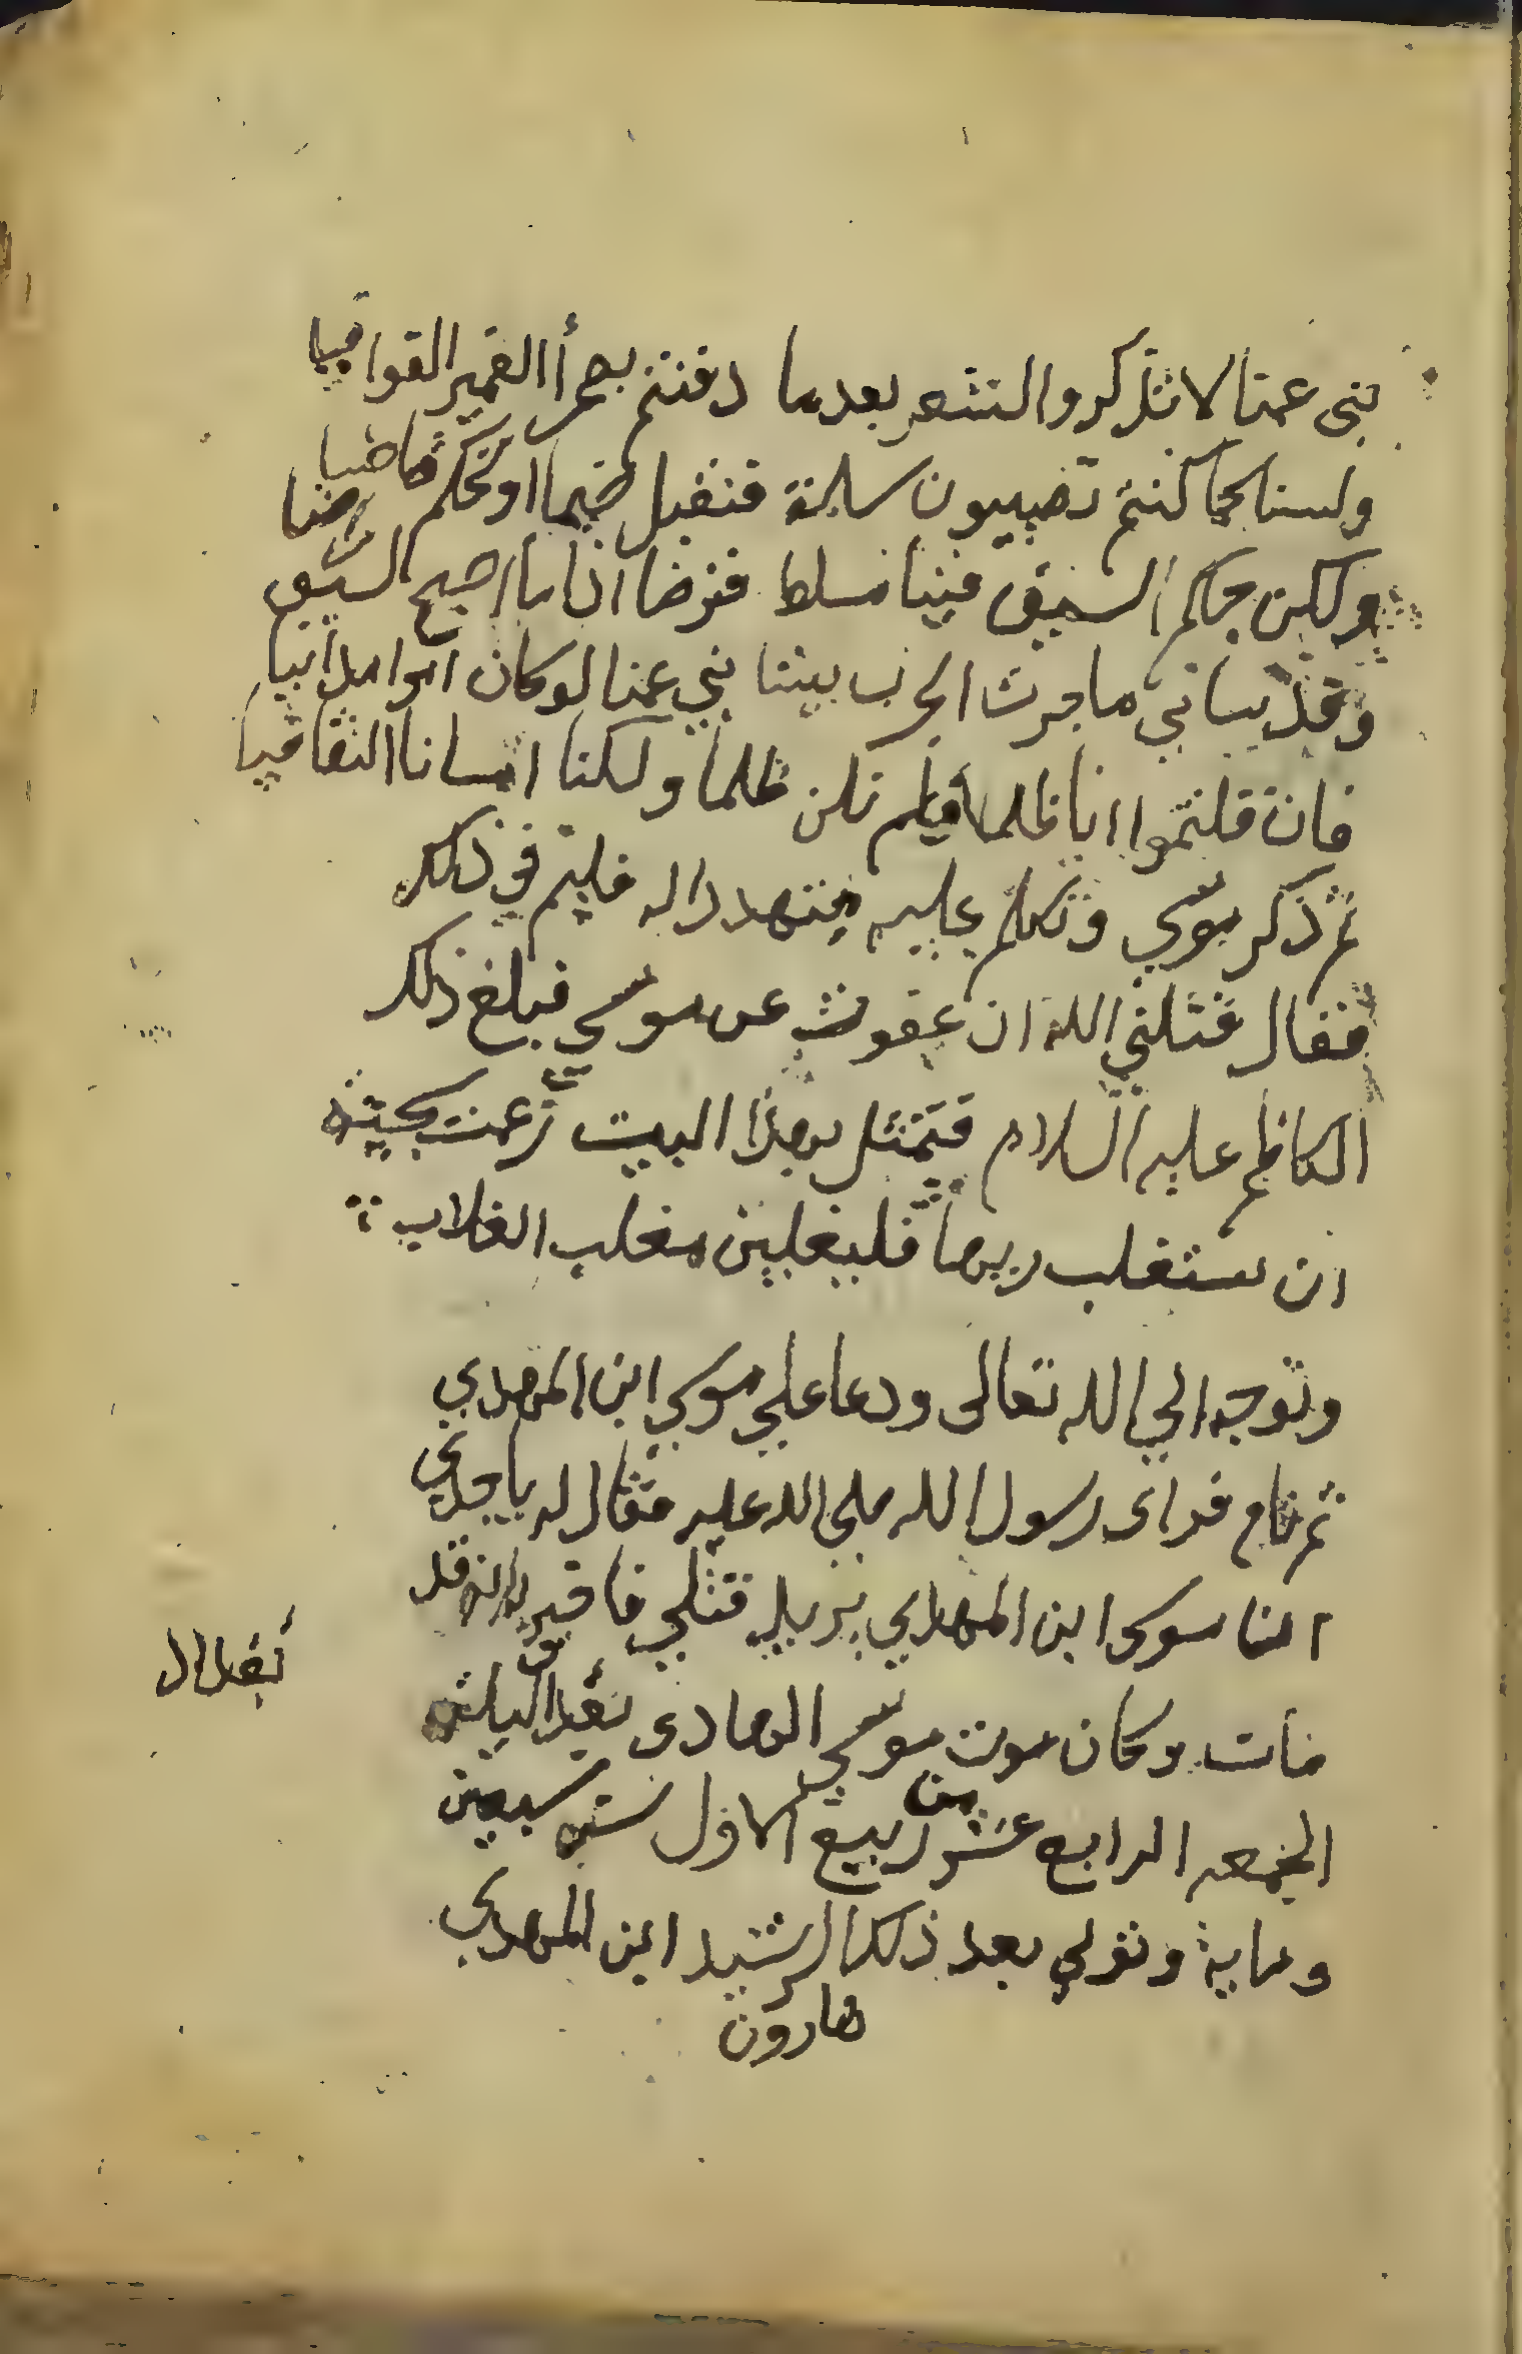 بنى عمنا لا تذكروا الشعر بعدما دفنتم بصحرأ الغمير القوافيا
ولسنا كما كنتم تصيبون سلمة فنقبل ضيما او نحكم قاضيا
ولكن حكم السيف فينا مسلط فنرضا اذا ما اصبح السيف راضيا
وقد ساني ما جرت الحرب بيننا بني عمنا لو كان امرا مدانيا
فان قلتموا انا ظلمنا فلم نكن ظلمنا ولكنا اسانا التقاضيا
ثم ذكر موسي وتكلم عليه متهددا له فليم في ذلك
فقال قتلني الله ان عفوت عن موسي فبلغ ذلك
الكاظم عليه السلام فتمثل بهذا البيت زعمت سخينة
ان ستغلب ربها فليغلبن مغلب الغلاب
وتوجه الي الله تعالى ودعا علي موسي ابن المهدي
ثم نام فراى رسول الله صلى الله عليه فقال له يا جدي
انا موسى ابن المهدي يريد قتلي فاخبره انه قد
مات وكان موت موسي الهادى ببغداد ليلة
الجمعه الرابع عشر من ربيع الاول سنه سبعين
وماية وتولي بعد ذلك الرشيد ابن المهدي
هارون
بغداد